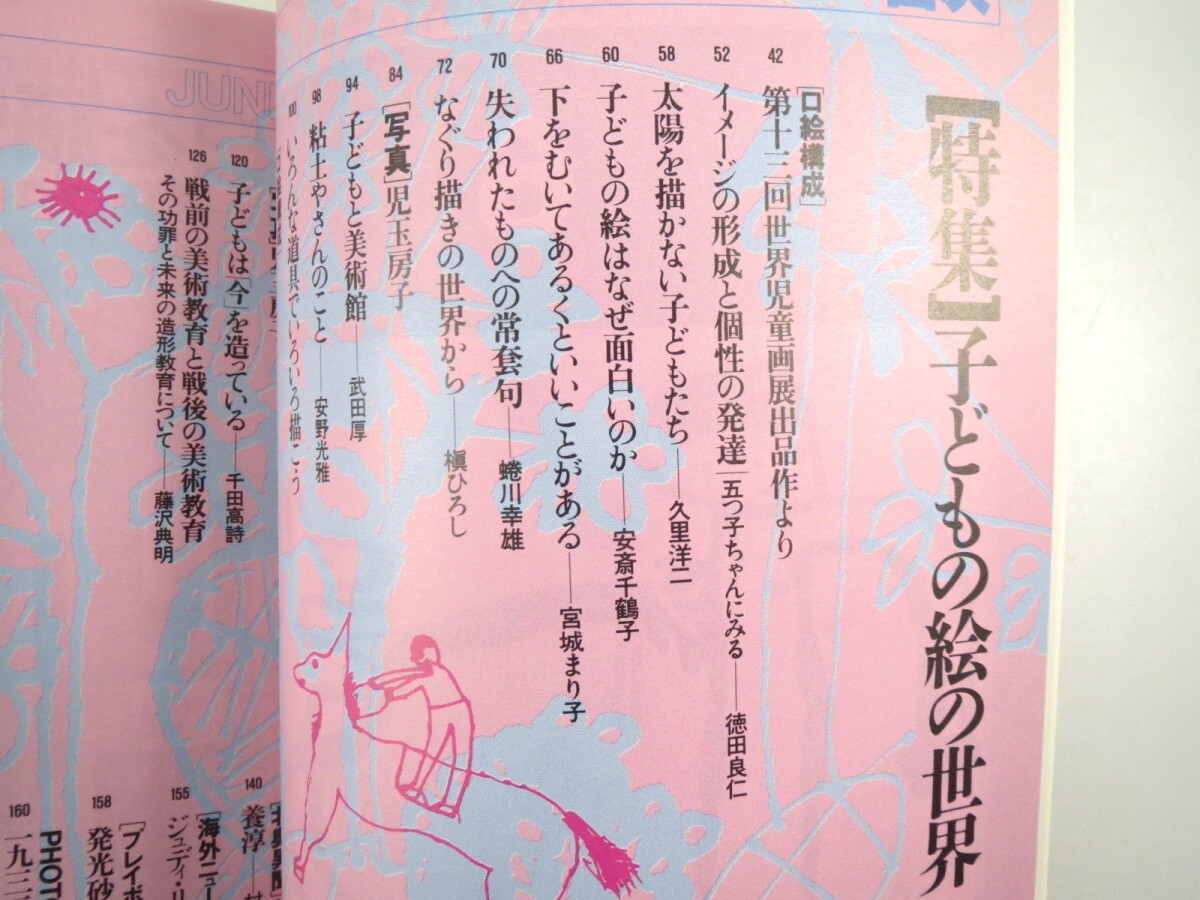 【特集】子どもの絵の世界
[口絵構成]
42 第十三回世界児童画展出品作より
52 イメージの形成と個性の発達|五つ子ちゃんにみる——徳田良仁
58 太陽を描かない子どもたち——久里洋二
60 子どもの絵はなぜ面白いのか——安斎千鶴子
66 下をむいてあるくといいことがある——宮城まり子
70 失われたものへの常套句——蜷川幸雄
72 なぐり描きの世界から——槇ひろし
84 [写真]児玉房子
94 子どもと美術館——武田厚
98 粘土やさんのこと——安野光雅
100 いろんな道具でいろいろ描こう
JUN
120 子どもは「今」を造っている——千田高詩
126 戦前の美術教育と戦後の美術教育
その功罪と未来の造形教育について——藤沢典明
140
養淳——村
155 [海外ニュー
ジュディ・リ
158 [プレイボ
発光砂
160 PHOTO
一九三